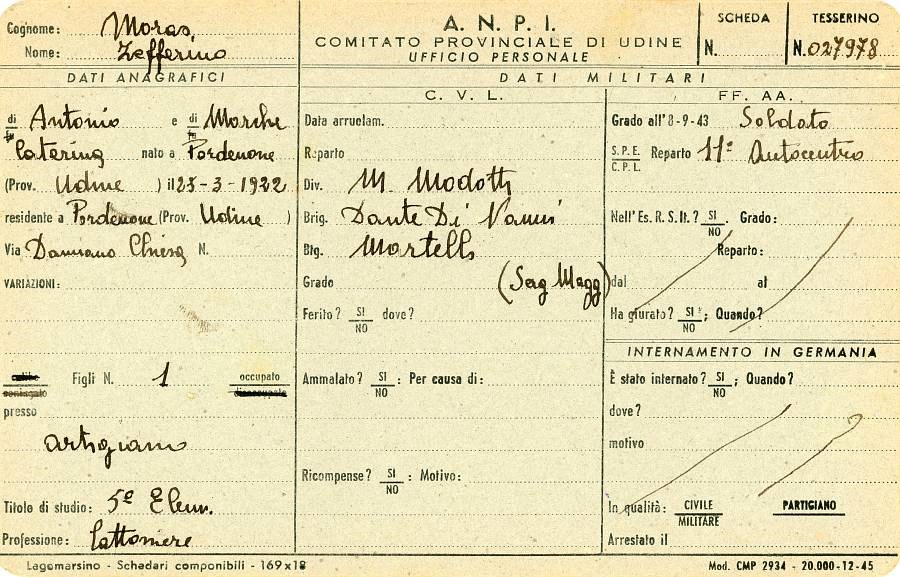 Cognome: Moras,
Nome: Zefferino
A. N. P. I.
COMITATO PROVINCIALE DI UDINE
UFFICIO PERSONALE
SCHEDA
N.
TESSERINO
N. 027978
DATI ANAGRAFICI
DATI MILITARI
di fu Antonio e di fu Marchi
Caterina nato a Pordenone
(Prov. Udine ) il 25-3-1922
residente a Pordenone (Prov. Udine )
Via Damiano Chiesa N.
VARIAZIONI:
celibe
coniugato
Figli N. 1
occupato
disoccupato
presso
artigiano
Titolo di studio: 5ª Elem.
Professione: Lattoniere
C. V. L.
Data arruolam.
Reparto
Div. M. Modotti
Brig. Dante Di Nanni
Btg. Martelli
Grado (Serg Magg)
Ferito? SI NO dove?
Ammalato? SI NO : Per causa di:
Ricompense? SI NO : Motivo:
FF. AA.
Grado all'8-9-43 Soldato
S.P.E. C.P.L. Reparto 11º Autocentro
Nell'Es. R. S. It.? SI NO . Grado:
Reparto:
dal al
Ha giurato? SI NO ; Quando?
INTERNAMENTO IN GERMANIA
È stato internato? SI NO ; Quando?
dove?
motivo
In qualità: CIVILE MILITARE PARTIGIANO
Arrestato il
Lagomarsino - Schedari componibili - 169x18
Mod. CMP 2934 - 20.000-12-45